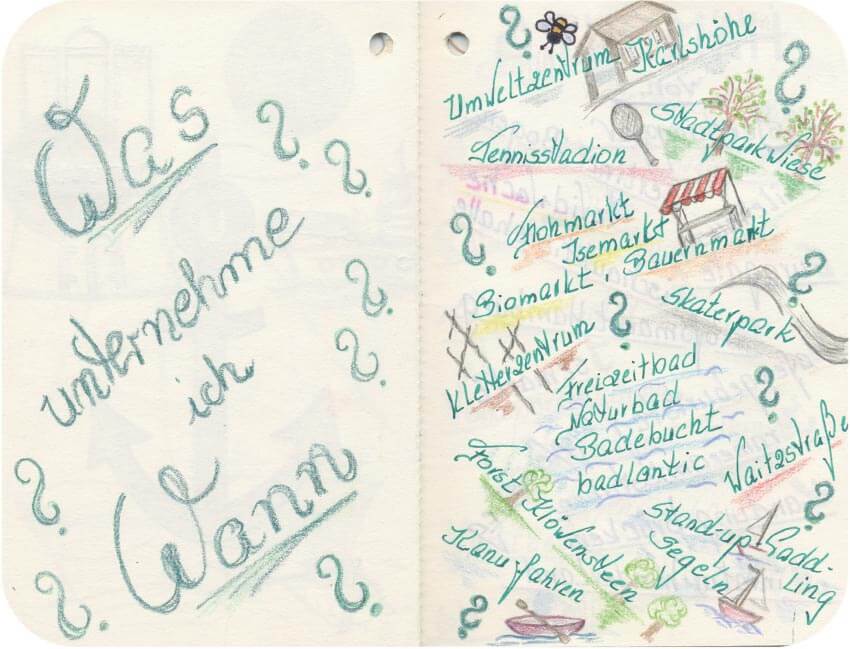 Was
? ?
unternehme
?
ich
?
Wann
?
? ?
?
Umweltzentrum Karlshöhe
?
Tennisstadion
Stadtparkwiese
?
Flohmarkt
Isemarkt
Biomarkt, Bauernmarkt
?
Skaterpark
?
Kletterzentrum
Freizeitbad
Naturbad
Badebucht
badlantic
?
Waitzstraße
Forst Klövensteen
?
Stand-up-Padd-
ling
Segeln
Kanu fahren
?